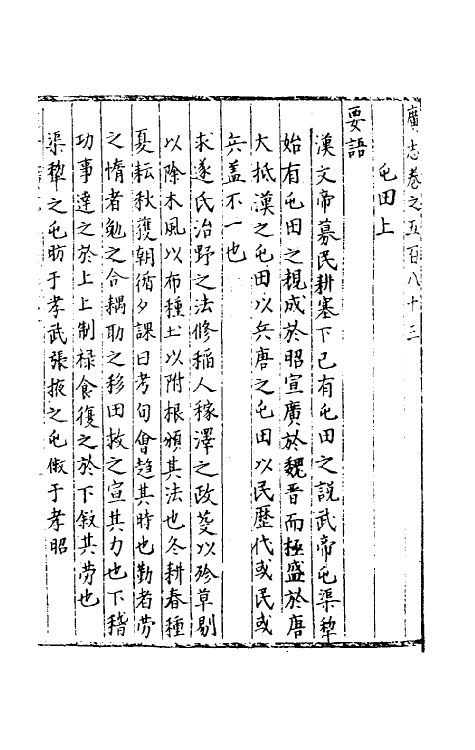 廣志卷之五百八十三
屯田上
要語
漢文帝募民耕塞下已有屯田之説武帝屯渠犂
始有屯田之規成於昭宣廣於魏晉而極盛於唐
大抵漢之屯田以兵唐之屯田以民歴代或民或
兵盖不一也
求遂氏治野之法修稲人稼澤之政芟以殄草剔
以除木風以布種土以附根頒其法也冬耕春種
夏耘秋獲朝循夕課日考旬會趨其時也勤者勞
之惰者勉之合耦助之移田救之宣其力也下稽
功事達之於上上制禄食復之於下叙其勞也
渠犂之屯昉于孝武張掖之屯倣于孝昭